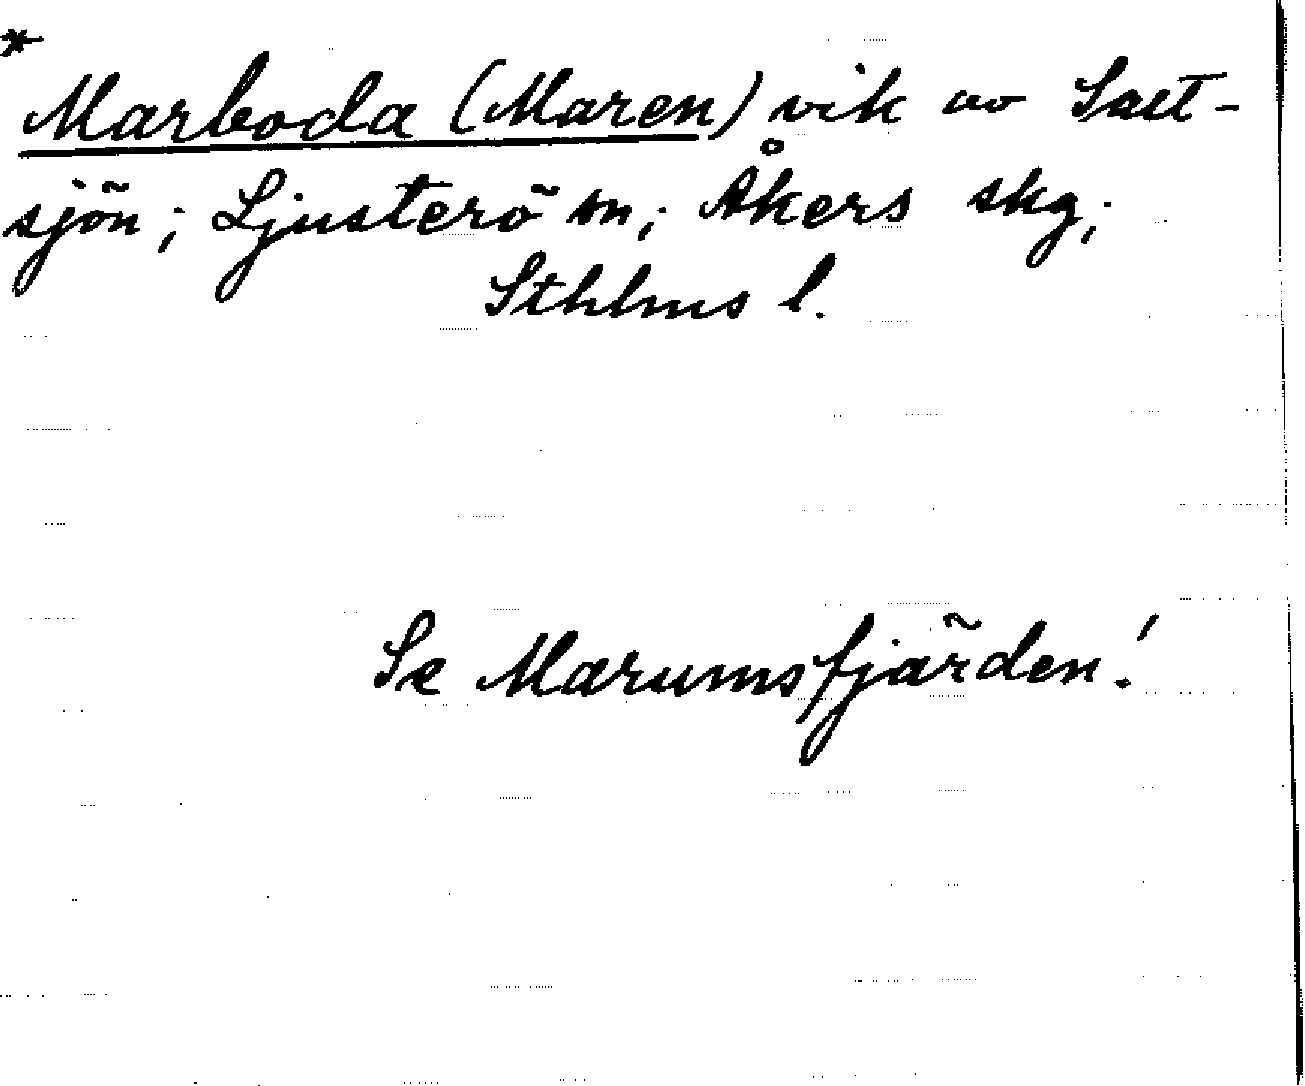 *
Marboda (Maren) vik av Salt-
sjön; Ljusterö sn; Åkers skg;
Sthlms l.
Se Marumsfjärden!